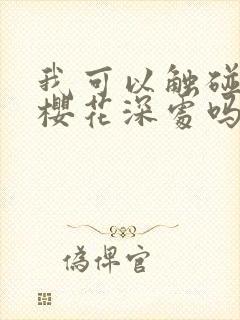 我可以触碰
樱花深处吗
偽俾官